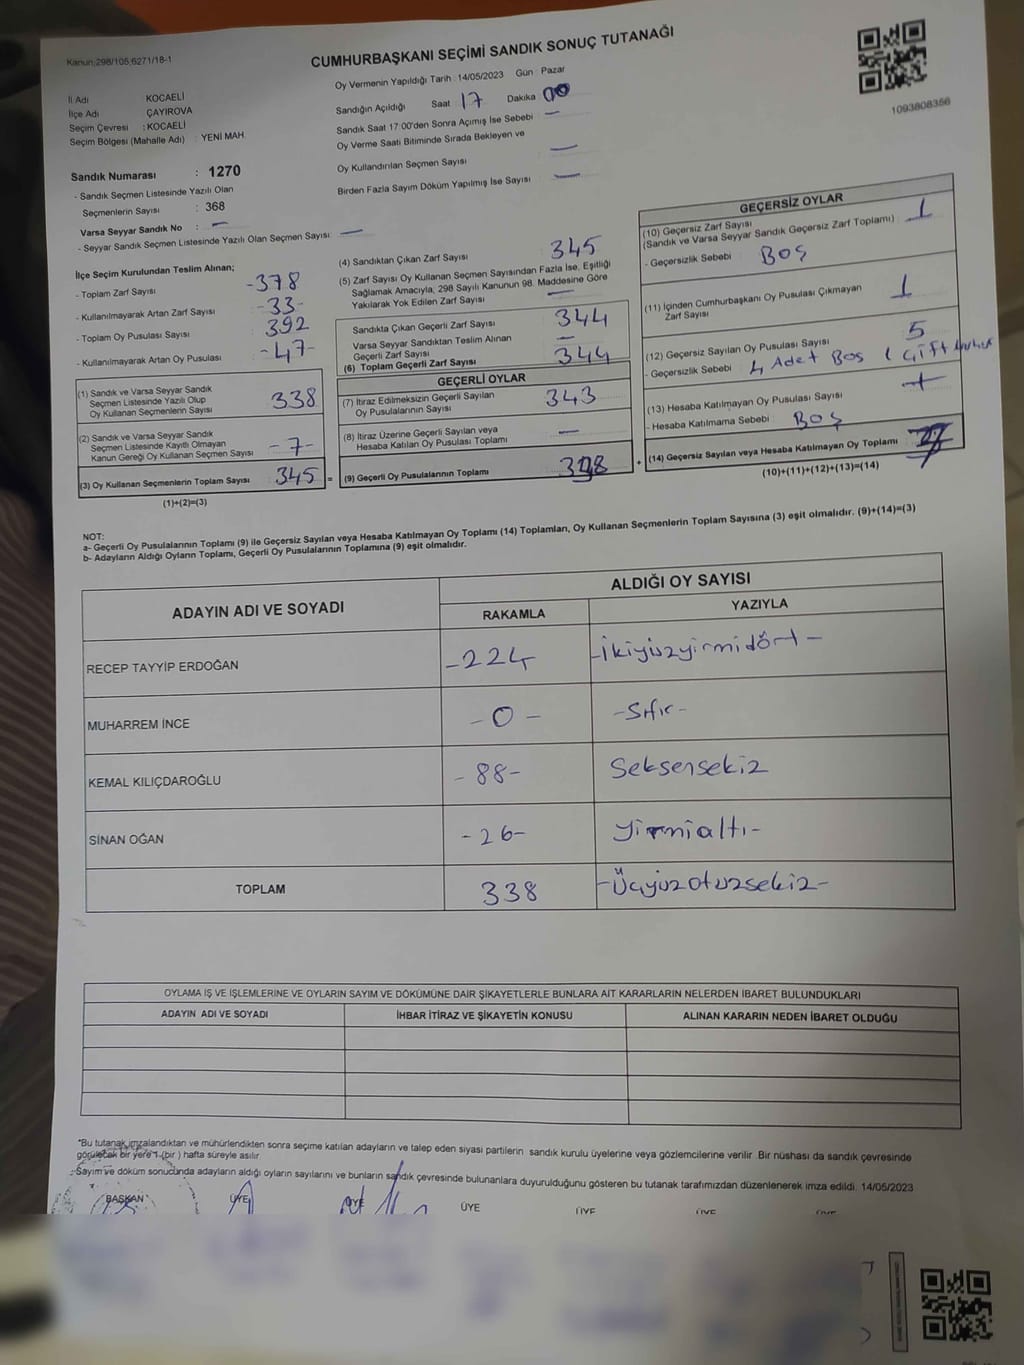 Kanun;298/105;6271/18-1
CUMHURBAŞKANI SEÇİMİ SANDIK SONUÇ TUTANAĞI
1093808356
İl Adı KOCAELİ
İlçe Adı ÇAYIROVA
Seçim Çevresi : KOCAELİ
Seçim Bölgesi (Mahalle Adı) : YENİ MAH.
Sandık Numarası : 1270
- Sandık Seçmen Listesinde Yazılı Olan
Seçmenlerin Sayısı : 368
Varsa Seyyar Sandık No : —
- Seyyar Sandık Seçmen Listesinde Yazılı Olan Seçmen Sayısı: —
Oy Vermenin Yapıldığı Tarih : 14/05/2023 Gün Pazar
Sandığın Açıldığı Saat 17 Dakika 00
Sandık Saat 17:00'den Sonra Açımış İse Sebebi —
Oy Verme Saati Bitiminde Sırada Bekleyen ve
Oy Kullandırılan Seçmen Sayısı —
Birden Fazla Sayım Döküm Yapılmış İse Sayısı —
İlçe Seçim Kurulundan Teslim Alınan;
- Toplam Zarf Sayısı -378
- Kullanılmayarak Artan Zarf Sayısı -33-
- Toplam Oy Pusulası Sayısı 392
- Kullanılmayarak Artan Oy Pusulası -47-
(1) Sandık ve Varsa Seyyar Sandık
Seçmen Listesinde Yazılı Olup
Oy Kullanan Seçmenlerin Sayısı 338
(2) Sandık ve Varsa Seyyar Sandık
Seçmen Listesinde Kayıtlı Olmayan
Kanun Gereği Oy Kullanan Seçmen Sayısı -7-
(3) Oy Kullanan Seçmenlerin Toplam Sayısı 345
(1)+(2)=(3)
(4) Sandıktan Çıkan Zarf Sayısı 345
(5) Zarf Sayısı Oy Kullanan Seçmen Sayısından Fazla İse, Eşitliği
Sağlamak Amacıyla, 298 Sayılı Kanunun 98. Maddesine Göre
Yakılarak Yok Edilen Zarf Sayısı —
Sandıkta Çıkan Geçerli Zarf Sayısı 344
Varsa Seyyar Sandıktan Teslim Alınan
Geçerli Zarf Sayısı —
(6) Toplam Geçerli Zarf Sayısı 344
GEÇERLİ OYLAR
(7) İtiraz Edilmeksizin Geçerli Sayılan
Oy Pusulalarının Sayısı 343
(8) İtiraz Üzerine Geçerli Sayılan veya
Hesaba Katılan Oy Pusulası Toplamı —
= (9) Geçerli Oy Pusulalarının Toplamı
GEÇERSİZ OYLAR
(10) Geçersiz Zarf Sayısı
(Sandık ve Varsa Seyyar Sandık Geçersiz Zarf Toplamı) : 1
- Geçersizlik Sebebi Boş
(11) İçinden Cumhurbaşkanı Oy Pusulası Çıkmayan
Zarf Sayısı 1
(12) Geçersiz Sayılan Oy Pusulası Sayısı 5
- Geçersizlik Sebebi 4 Adet Boş 1 Çift
(13) Hesaba Katılmayan Oy Pusulası Sayısı
- Hesaba Katılmama Sebebi : Boş
+ (14) Geçersiz Sayılan veya Hesaba Katılmayan Oy Toplamı
(10)+(11)+(12)+(13)=(14)
NOT:
a- Geçerli Oy Pusulalarının Toplamı (9) ile Geçersiz Sayılan veya Hesaba Katılmayan Oy Toplamı (14) Toplamları, Oy Kullanan Seçmenlerin Toplam Sayısına (3) eşit olmalıdır. (9)+(14)=(3)
b- Adayların Aldığı Oyların Toplamı, Geçerli Oy Pusulalarının Toplamına (9) eşit olmalıdır.
ADAYIN ADI VE SOYADI
ALDIĞI OY SAYISI
RAKAMLA YAZIYLA
RECEP TAYYİP ERDOĞAN -224 -ikiyüzyirmidört-
MUHARREM İNCE -0- -Sıfır-
KEMAL KILIÇDAROĞLU -88- Seksensekiz
SİNAN OĞAN -26- yirmialtı-
TOPLAM 338 -Üçyüzotuzsekiz-
OYLAMA İŞ VE İŞLEMLERİNE VE OYLARIN SAYIM VE DÖKÜMÜNE DAİR ŞİKAYETLERLE BUNLARA AİT KARARLARIN NELERDEN İBARET BULUNDUKLARI
ADAYIN ADI VE SOYADI İHBAR İTİRAZ VE ŞİKAYETİN KONUSU ALINAN KARARIN NEDEN İBARET OLDUĞU
*Bu tutanak imzalandıktan ve mühürlendikten sonra seçime katılan adayların ve talep eden siyasi partilerin sandık kurulu üyelerine veya gözlemcilerine verilir .Bir nüshası da sandık çevresinde
görülecek bir yere 1 (bir ) hafta süreyle asılır.
: Sayım ve döküm sonucunda adayların aldığı oyların sayılarını ve bunların sandık çevresinde bulunanlara duyurulduğunu gösteren bu tutanak tarafımızdan düzenlenerek imza edildi. 14/05/2023
BAŞKAN ÜYE ÜYE ÜYE ÜYE ÜYE ÜYE